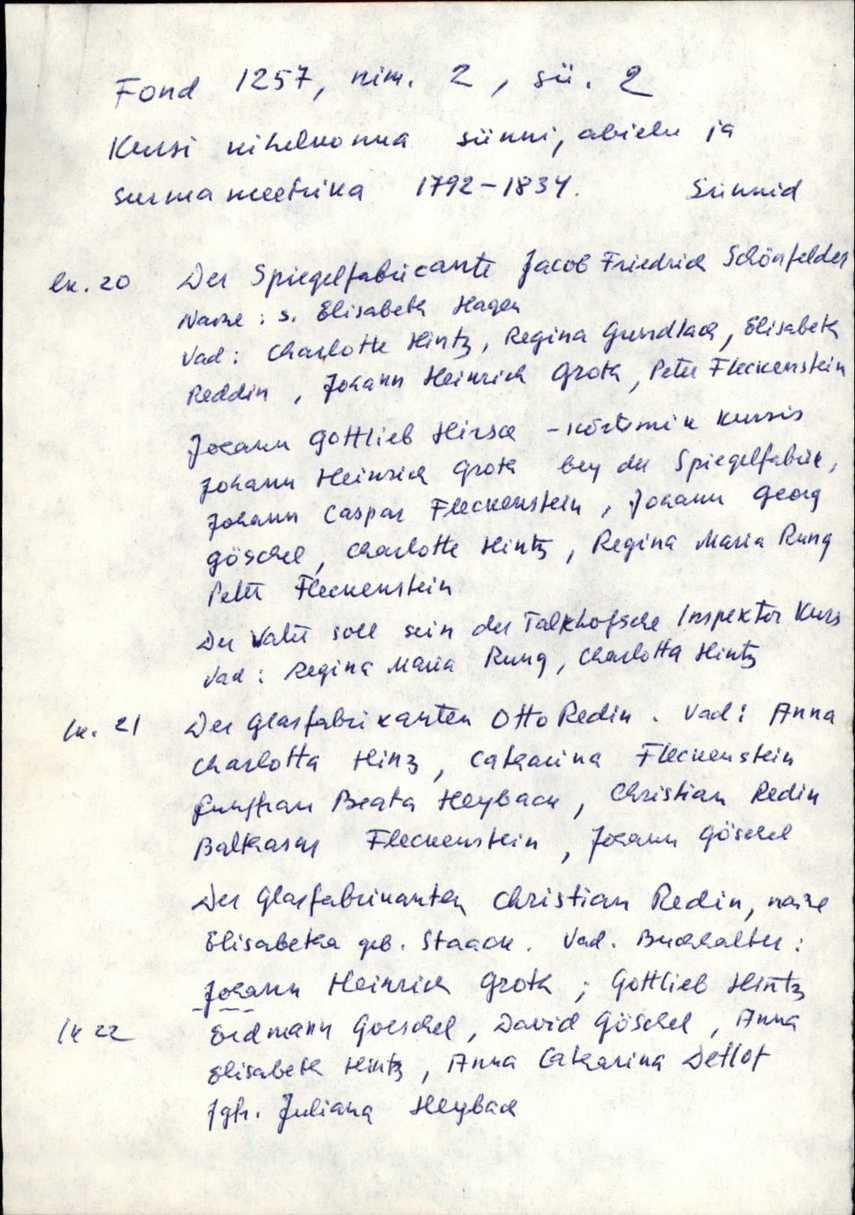 Fond 1257, nim. 2, sü. 2
Kursi kihelkonna sünni, abielu ja
surma meetrika 1792-1834. Sünnid
lk. 20 Der Spiegelfabricante Jacob Friedrich Schönfelder
Naine: s. Elisabeth Hagen
Vad: Charlotte Hintz, Regina Grundlach, Elisabeth
Reddin, Johann Heinrich Groth, Peter Fleckenstein
Johann Gottlieb Hirsch - kõrtsmik Kursis
Johann Heinrich Groth bey der Spiegelfabrik,
Johann Caspar Fleckenstein, Johann Georg
Göschel, Charlotte Hintz, Regina Maria Rung
Peter Fleckenstein
Der Vater soll sein der Talkhofsche Inspektor Kurs
Vad: Regina Maria Rung, Charlotta Hintz
lk. 21 Der Glasfabrikanten Otto Redin. Vad: Anna
Charlotta Hinz, Catharina Fleckenstein
Jungfrau Beata Heybach, Christian Redin
Balthasar Fleckenstein, Johann Göschel
Der Glasfabrikanten Christian Redin, naine
Elisabetha geb. Staack. Vad. Buchhalter:
Johann Heinrich Groth; Gottlieb Hintz
lk 22 Erdmann Goeschel, David Göschel, Anna
Elisabeth Hintz, Anna Catharina Detlof
Jgfr. Juliana Heybach